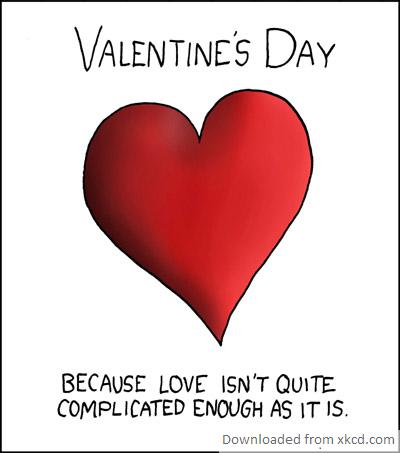 VALENTINE'S DAY
BECAUSE LOVE ISN'T QUITE
COMPLICATED ENOUGH AS IT IS.
Downloaded from xkcd.com